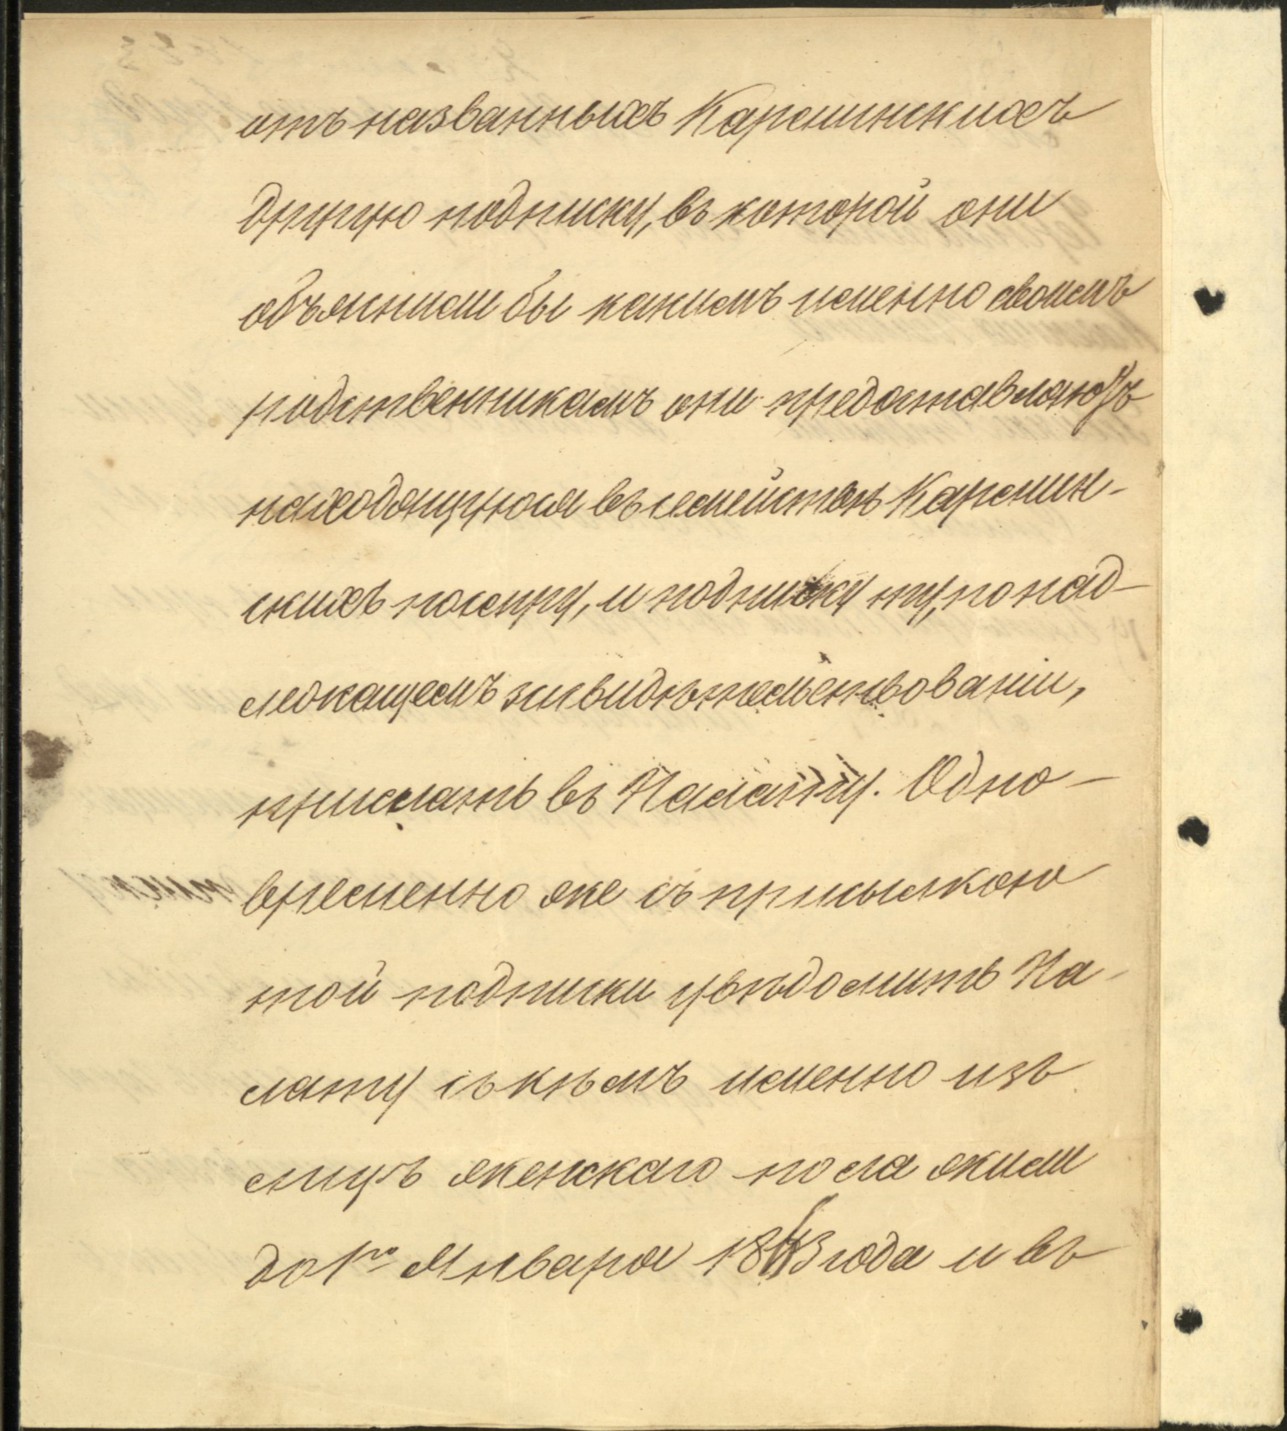 отъ названныхъ Карсминскихъ
другую подписку, въ которой они
объяснили бы какимъ именно своимъ
родственникамъ они предоставляютъ
находящуюся въ семействѣ Карсмин-
скихъ посуду, и подписку ту, по над-
лежащемъ засвидѣтельствованіи,
прислать въ Палату. Одно-
временно же съ присылкою
той подписки увѣдомить Па-
лату съ кѣмъ именно изъ
лицъ женскаго пола жили
до 1го Января 1843 года и въ